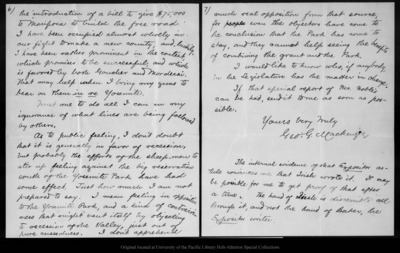 6)
the introduction of a bill to give $75,000
to Mariposa to build the free road.
I have been occupied almost wholly in
our fight to make a new county, and
I have been rather prominent in the contest,
which promises to be successful, and which
is favored both
That may help when I bring my guns to
bear on them in re Yosemite.
Trust me to do all I can in my
ignorance of what lines are being followed
by others.
As to public feeling, I don't doubt
that it is generally in favor of recession,
but probably the efforts of the sheep-men to
stir up feeling against the big reservation
south of the Yosemite Park have had
some effect. Just how much I am not
prepared to say. I mean feeling in opposition
to the Yosemite Park, and a kind of
ness that might vent itself by objecting
to recession of the Valley, just out of
pure cussedness. I don't apprehend
7)
much real opposition from that source,
for even the objectors have come to
the conclusion that the Park has come to
stay, and they cannot help seeing the benefit
of combining the grant and the Park.
I would like to know who, if anybody,
in the Legislature has the matter in charge.
If that special report of Mr. Noble's
can be had, send it to me as soon as pos-
sible.
Yours very truly
Geo. G. Mackenzie
The internal evidence of that Expositor ar-
ticle convinces me that Irish wrote it. It may
be possible for me to get proof of that after
a time. The hand of Irish is discernible all
through it, and not the hand of Baker, the
Expositor writer.
Original located at University of the Pacific Library Holt-Atherton Special Collections.